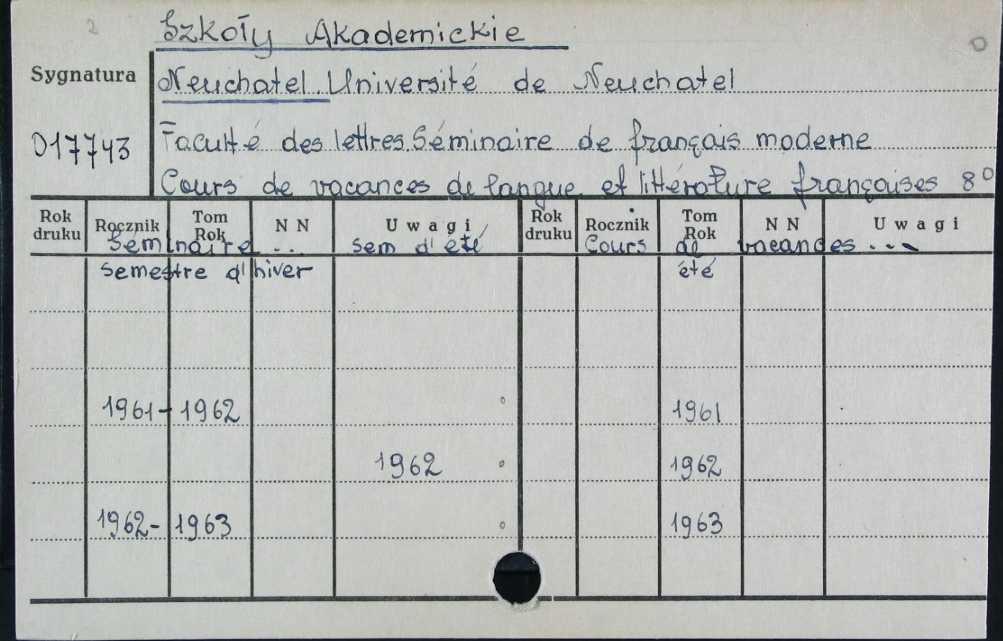 2
Szkoły Akademickie
Sygnatura
Neuchatel. Université de Neuchatel
D17743
Faculté des lettres. Séminaire de français moderne
Cours de vacances de langue et littérature françaises 8°
Rok druku Rocznik Tom Rok N N Uwagi Rok druku Rocznik Tom Rok N N Uwagi
Seminaire .. sem d'été Cours de vacances ...
semestre d'hiver été
1961-1962 1961
1962 1962
1962-1963 1963